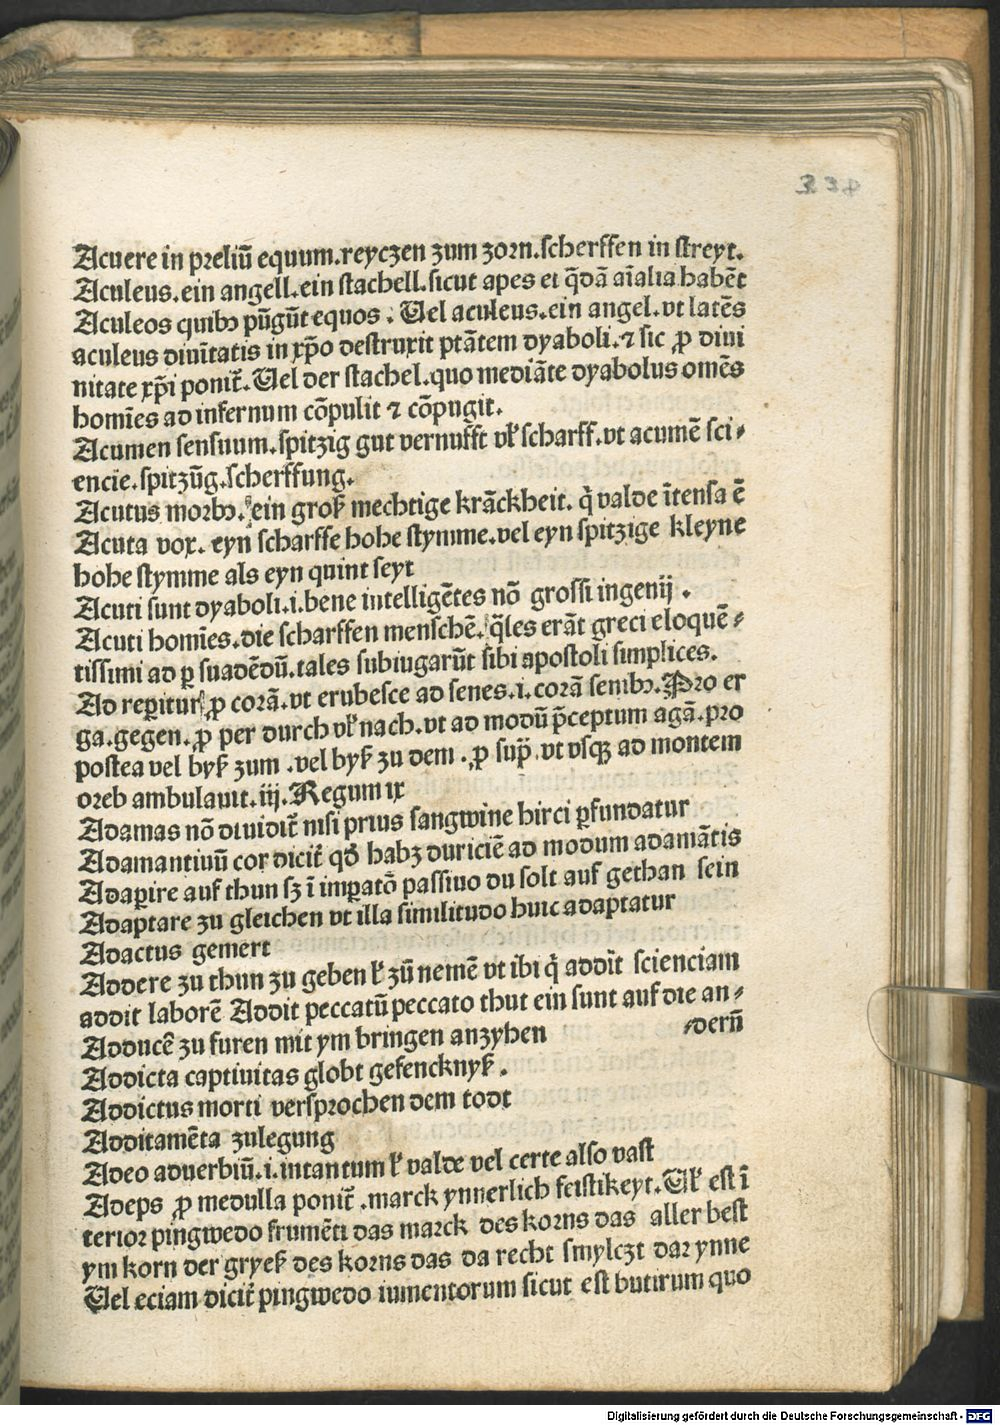 334
Acuere in preliū equum.reyczen zum zorn.scherffen in streyt.
Aculeus.ein angell.ein stachell.sicut apes et q̄dā aīalia habēt
Aculeos quibꝰ pūgūt equos. Uel aculeus.ein angel.vt latēs
aculeus diuītatis in xp̄o destruxit ptātem dyaboli.⁊ sic ꝓ diui
nitate xp̄i ponit̄.Uel der stachel.quo mediāte dyabolus omēs
homīes ad infernum cōpulit ⁊ cōpugit.
Acumen sensuum.spitzig gut vernufft vl̄ scharff.vt acumē sci⸗
encie.spitzūg.scherffung.
Acutus morbꝰ.ein groß mechtige krāckheit. q̇ valde ītensa ē
Acuta vox. eyn scharffe hohe stymme.vel eyn spitzige kleyne
hohe stymme als eyn quint seyt
Acuti sunt dyaboli.i.bene intelligētes nō grossi ingenij.
Acuti homīes.die scharffen menschē.q̄les erāt greci eloquē⸗
tissimi ad ꝑsuadēdū.tales subiugarūt sibi apostoli simplices.
Ad reꝑitur ꝓ corā.vt erubesce ad senes.i.corā senibꝰ.Pro er
ga.gegen.ꝓ per durch vl̄ nach.vt ad modū p̄ceptum agā.pro
postea vel byß zum.vel byß zu dem.ꝓ sup̄.vt vsqꝫ ad montem
oreb ambulauit.iij.Regum ix
Adamas nō diuidit̄ nisi prius sangwine hirci ꝑfundatur
Adamantinū cor dicit̄ qd̄ habꝫ duriciē ad modum adamātis
Adaꝑire auf thun sꝫ ī imꝑatō passiuo du solt auf gethan sein
Adaptare zu gleichen vt illa similitudo huic adaptatur
Adactus gemert
Addere zu thun zu geben l̄ zū nemē vt ibi q̇ addit scienciam
addit laborē Addit peccatū peccato thut ein sunt auf die an⸗
Adducē zu furen mit ym bringen anzyhen ⸗dern̄
Addicta captiuitas globt gefencknyß.
Addictus morti versprochen dem todt
Additamēta zulegung
Adeo aduerbiū.i.intantum l̄ valde vel certe also vast
Adeps ꝓ medulla ponit̄.marck ynnerlich feistikeyt.Ul̄ est ī
terior pingwedo frumēti das marck des korns das aller best
ym korn der gryeß des korns das da recht smylczt dar ynne
Uel eciam dicit̄ pingwedo iumentorum sicut est butirum quo
Digitalisierung gefördert durch die Deutsche Forschungsgemeinschaft - DFG